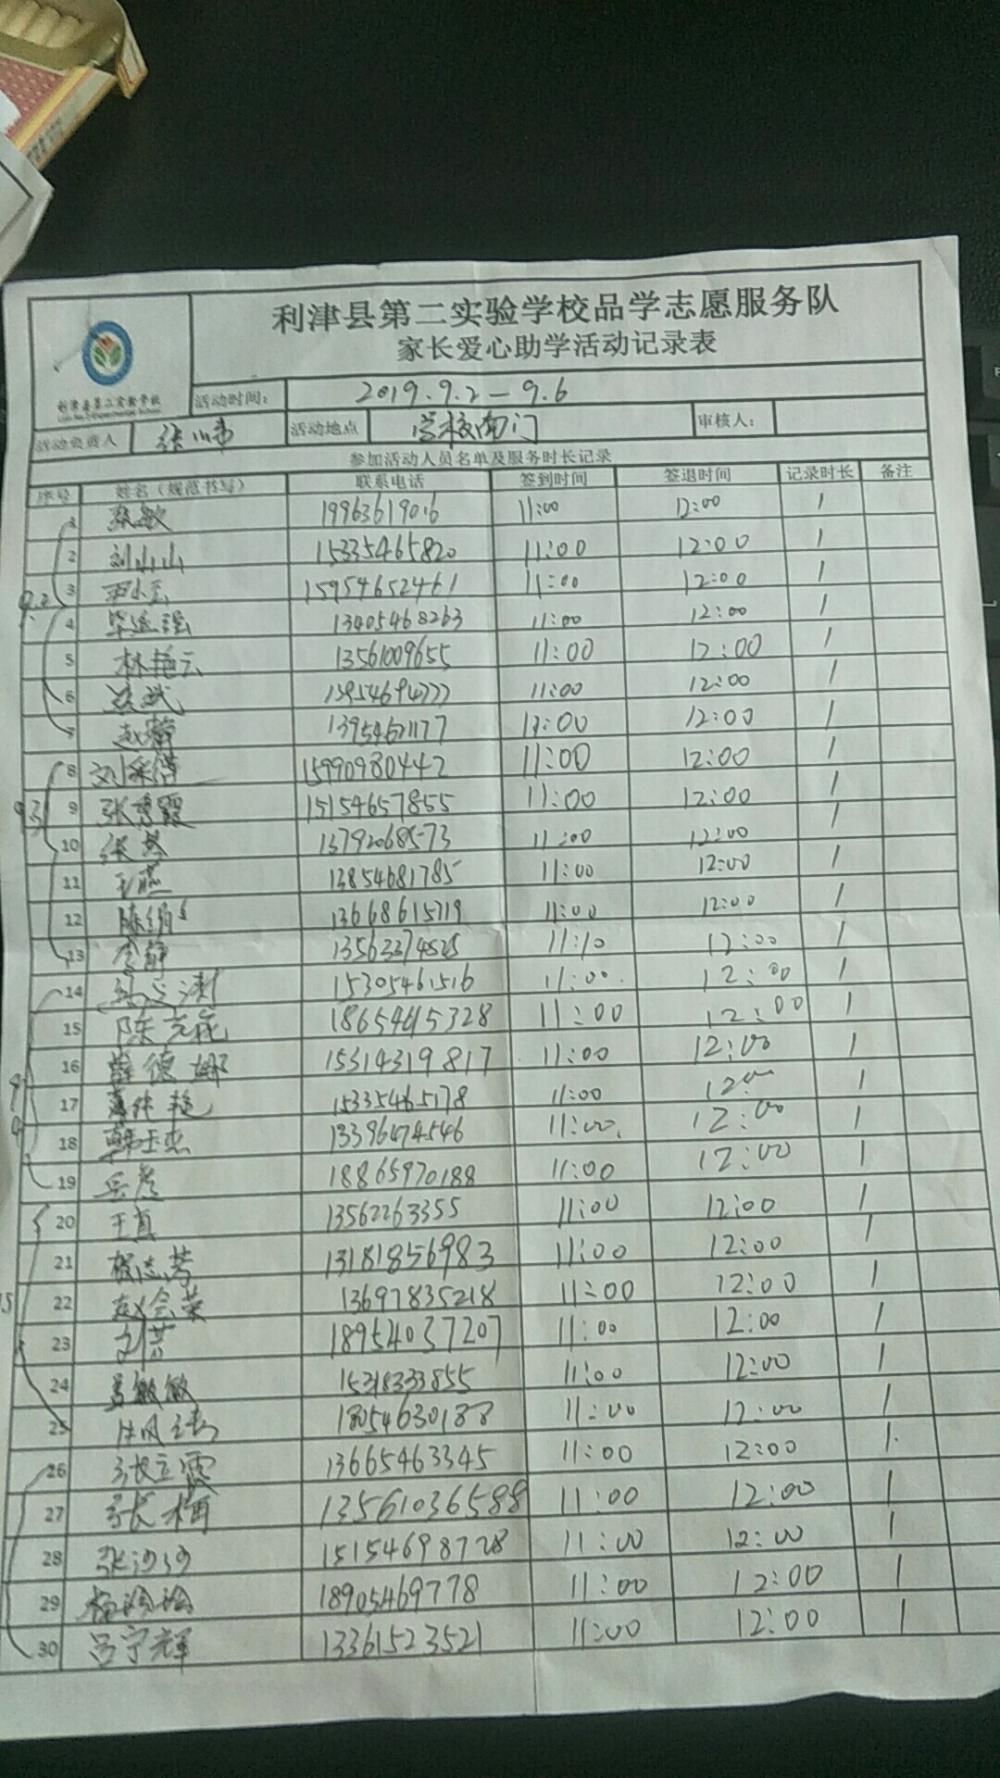 利津县第二实验学校品学志愿服务队
家长爱心助学活动记录表
利津县第二实验学校
活动时间: 2019.9.2-9.6
活动负责人 活动地点 学校南门 审核人:
参加活动人员名单及服务时长记录
序号 姓名(规范书写) 联系电话 签到时间 签退时间 记录时长 备注
1 张敏 19963619016 11:00 12:00 1
2 刘山山 15335465820 11:00 12:00 1
9.2
3 15954652461 11:00 12:00 1
4 13405468263 11:00 12:00 1
5 林艳云 13561009655 11:00 12:00 1
6 11:00 12:00 1
7 赵静 13954621177 11:00 12:00 1
8 15990980442 11:00 12:00 1
9.3
9 张秀霞 15154657855 11:00 12:00 1
10 13792068573 11:00 12:00 1
11 王燕 13854681785 11:00 12:00 1
12 陈娟 13668615719 11:00 12:00 1
13 李静 11:10 12:00 1
14 15305461516 11:00 12:00 1
15 陈克花 18654615328 11:00 12:00 1
16 薛德娜 15314319817 11:00 12:00 1
17 15335465178 11:00 12:00 1
18 韩玉杰 13396474546 11:00 12:00 1
19 18865970188 11:00 12:00 1
20 王真 13562263355 11:00 12:00 1
21 13181856983 11:00 12:00 1
22 赵会荣 13697835218 11:00 12:00 1
23 18954037207 11:00 12:00 1
24 15318333855 11:00 12:00 1
25 18054630188 11:00 12:00 1
26 张立霞 13665463345 11:00 12:00 1
27 张梅 13561036588 11:00 12:00 1
28 张沙沙 15154698728 11:00 12:00 1
29 杨玲玲 18905469778 11:00 12:00 1
30 吕宁辉 13361523521 11:00 12:00 1